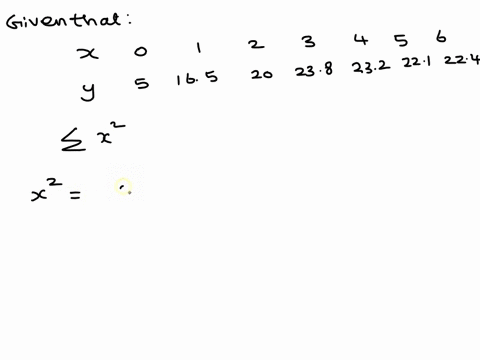 Given that:
x 0 1 2 3 4 5 6
y 5 16.5 20 23.8 23.2 22.1 22.4
∑ x²
x² =